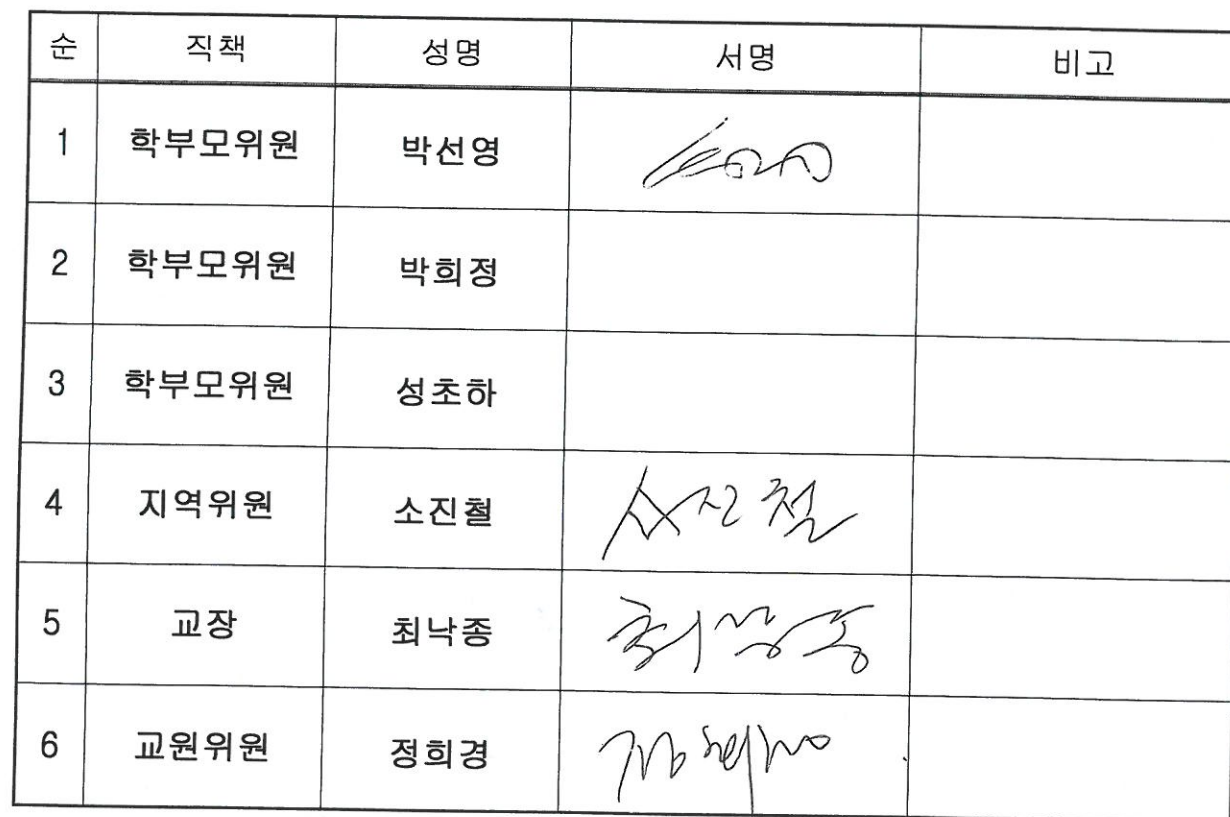 순 직책 성명 서명 비고
1 학부모위원 박선영
2 학부모위원 박희정
3 학부모위원 성초하
4 지역위원 소진철 소진철
5 교장 최낙종 최낙종
6 교원위원 정희경